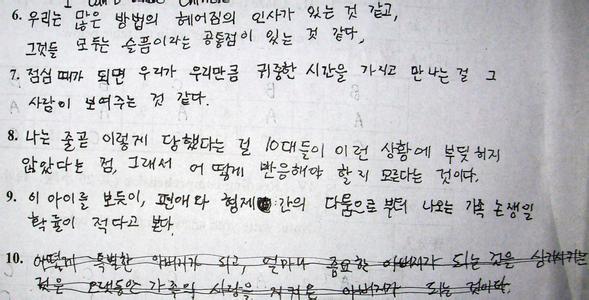 6. 우리는 많은 방법의 헤어짐의 인사가 있는 것 같고,
그것들 모두는 슬픔이라는 공통점이 있는 것 같다.
7. 점심 때가 되면 우리가 우리만큼 귀중한 시간을 가지고 만나는 걸 그
사람이 보여주는 것 같다.
8. 나는 줄곧 이렇게 당했다는 걸 10대들이 이런 상황에 부딪히지
않았다는 점, 그래서 어떻게 반응해야 할지 모른다는 것이다.
9. 이 아이를 보듯이, 편애와 형제 간의 다툼으로부터 나오는 가족 논쟁일
확률이 적다고 본다
10. 어떻게 특별한 아버지가 되고, 얼마나 중요한 아버지가 되는 것을
것은 가족의 사랑을 지켜온 아버지가 되는 것이다.